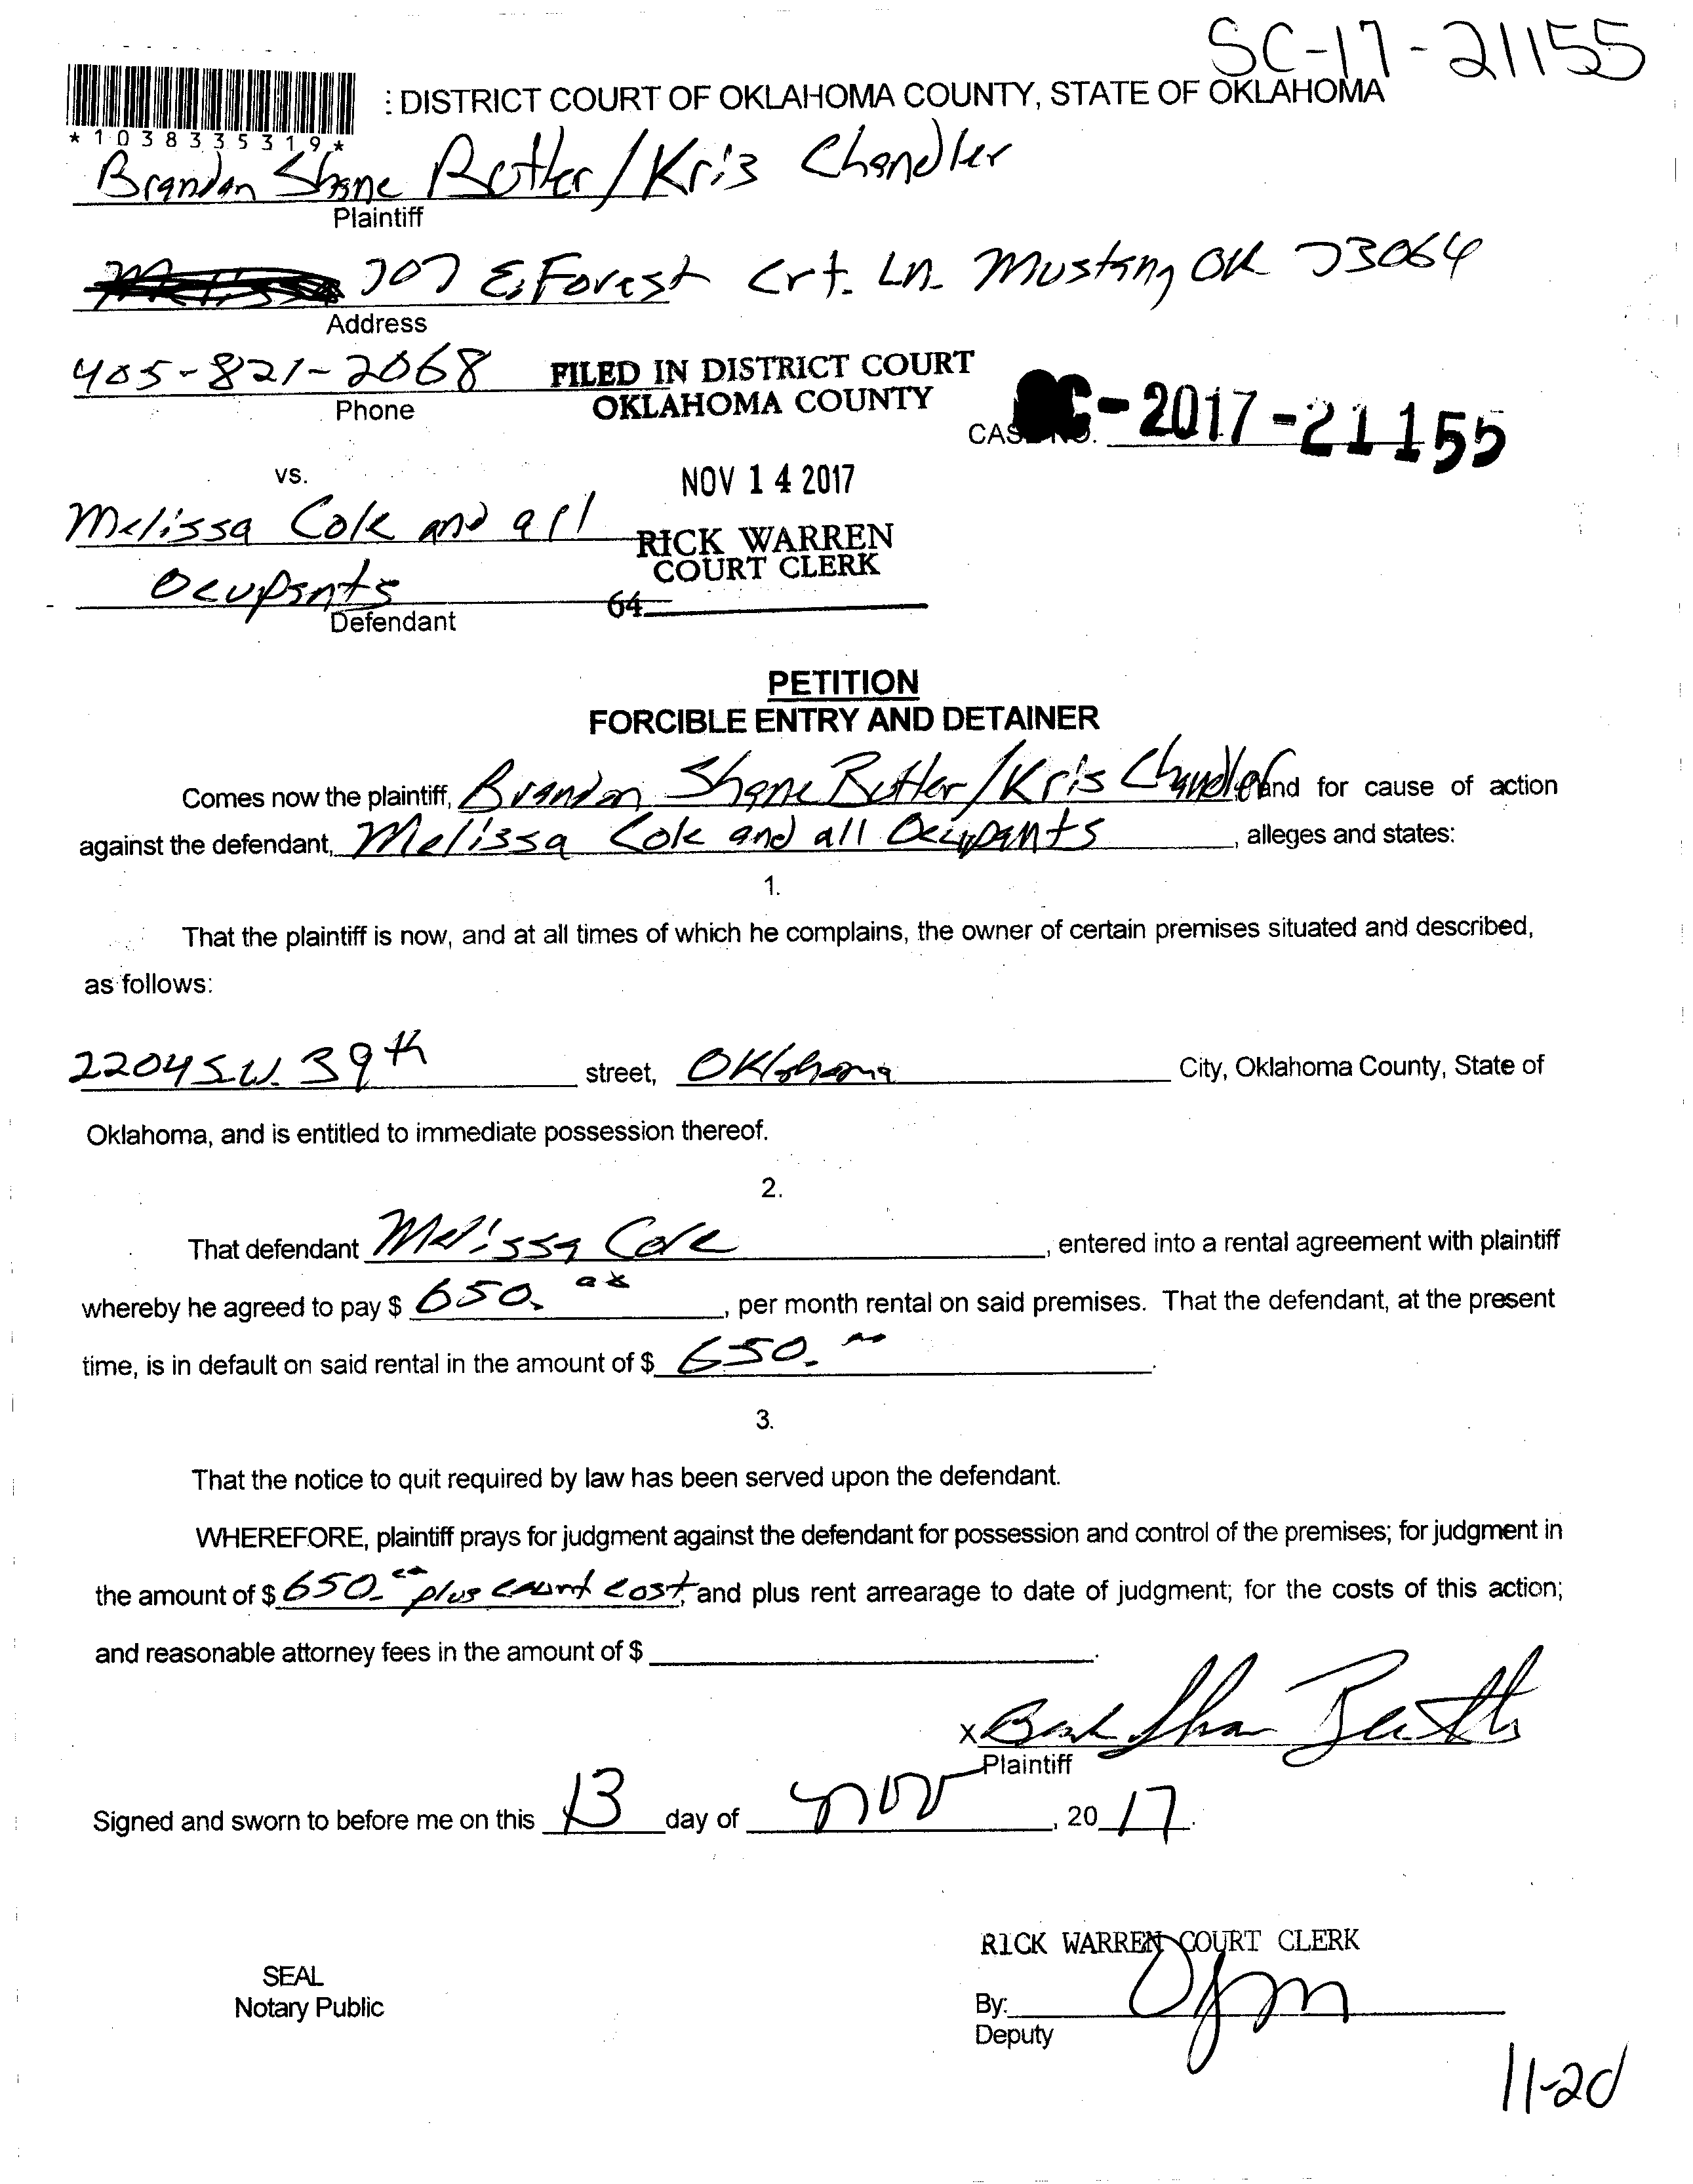 SC-17-21155
: DISTRICT COURT OF OKLAHOMA COUNTY, STATE OF OKLAHOMA
*1038335319*
Brandon Shane Butler / Kris Chandler
Plaintiff
707 E. Forest Crt. Ln. Mustang OK 73064
Address
405-821-2068
Phone
FILED IN DISTRICT COURT
OKLAHOMA COUNTY
CASE NO. C-2017-21155
vs.
NOV 14 2017
Melissa Cole and all
RICK WARREN
COURT CLERK
Ocupants
64
Defendant
PETITION
FORCIBLE ENTRY AND DETAINER
Comes now the plaintiff, Brandon Shane Butler / Kris Chandler and for cause of action
against the defendant, Melissa Cole and all Ocupants, alleges and states:
1.
That the plaintiff is now, and at all times of which he complains, the owner of certain premises situated and described,
as follows:
2204 S.W. 39th street, Oklahoma City, Oklahoma County, State of
Oklahoma, and is entitled to immediate possession thereof.
2.
That defendant Melissa Cole, entered into a rental agreement with plaintiff
whereby he agreed to pay $ 650.00, per month rental on said premises. That the defendant, at the present
time, is in default on said rental in the amount of $ 650.00.
3.
That the notice to quit required by law has been served upon the defendant.
WHEREFORE, plaintiff prays for judgment against the defendant for possession and control of the premises; for judgment in
the amount of $ 650.00 plus court cost, and plus rent arrearage to date of judgment; for the costs of this action;
and reasonable attorney fees in the amount of $.
X
Plaintiff
Signed and sworn to before me on this 13 day of Nov, 2017.
RICK WARREN COURT CLERK
SEAL
Notary Public
By:
Deputy
11-20